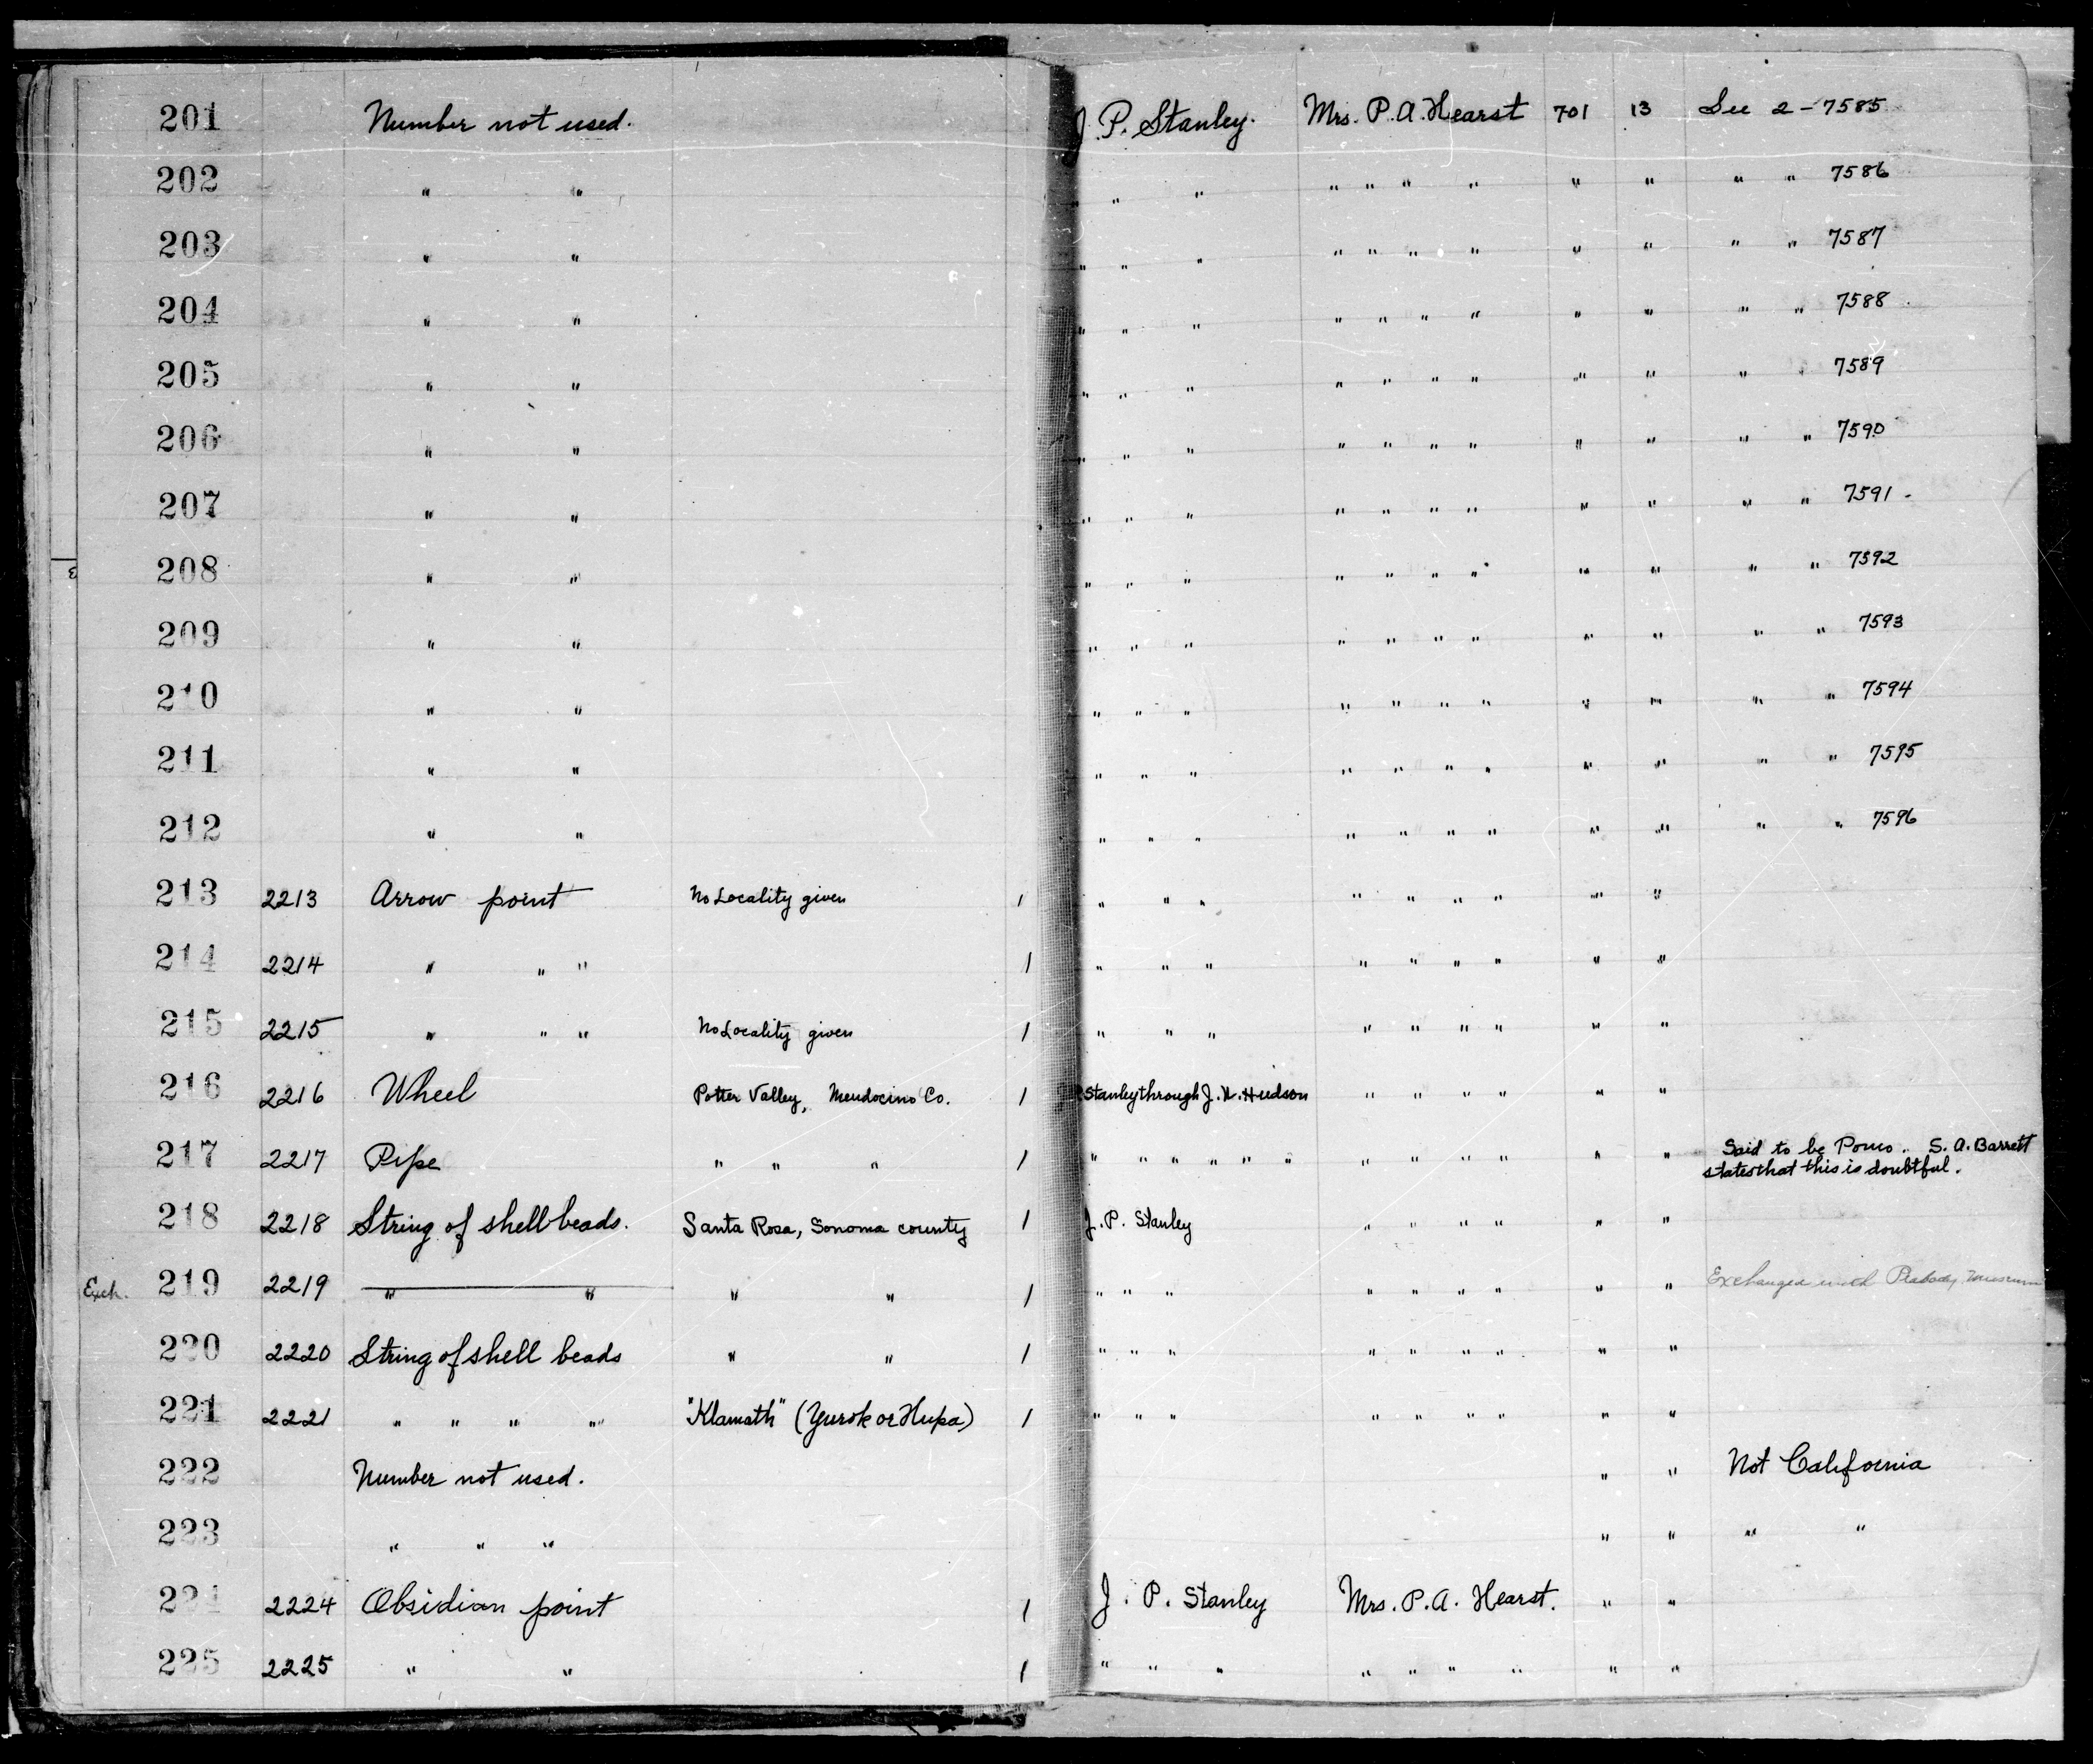 201 Number not used. J. P. Stanley. Mrs. P. A. Hearst 701 13 See 2-7585
202 " " " " " " " " " " " " " 7586
203 " " " " " " " " " " " " " 7587
204 " " " " " " " " " " " " " 7588
205 " " " " " " " " " " " " " 7589
206 " " " " " " " " " " " " " 7590
207 " " " " " " " " " " " " " 7591
208 " " " " " " " " " " " " " 7592
209 " " " " " " " " " " " " " 7593
210 " " " " " " " " " " " " " 7594
211 " " " " " " " " " " " " " 7595
212 " " " " " " " " " " " " " 7596
213 2213 Arrow point No Locality given 1 " " " " " " " " "
214 2214 " " " 1 " " " " " " " " "
215 2215 " " " No Locality given 1 " " " " " " " " "
216 2216 Wheel Potter Valley, Mendocino Co. 1 Stanley through J. W. Hudson " " " " " "
217 2217 Pipe " " " 1 " " " " " " " " " " " " " Said to be Pomo. S. A. Barrett
states that this is doubtful.
218 2218 String of shell beads. Santa Rosa, Sonoma county 1 J. P. Stanley " " " " " "
Exch. 219 2219 " " " " 1 " " " " " " " " " Exchanged with Peabody Museum
220 2220 String of shell beads " " 1 " " " " " " " " "
221 2221 " " " " "Klamath" (Yurok or Hupa) 1 " " " " " " " " "
222 Number not used. " " Not California
223 " " " " " " "
224 2224 Obsidian point 1 J. P. Stanley Mrs. P. A. Hearst. " "
225 2225 " " 1 " " " " " " " " "